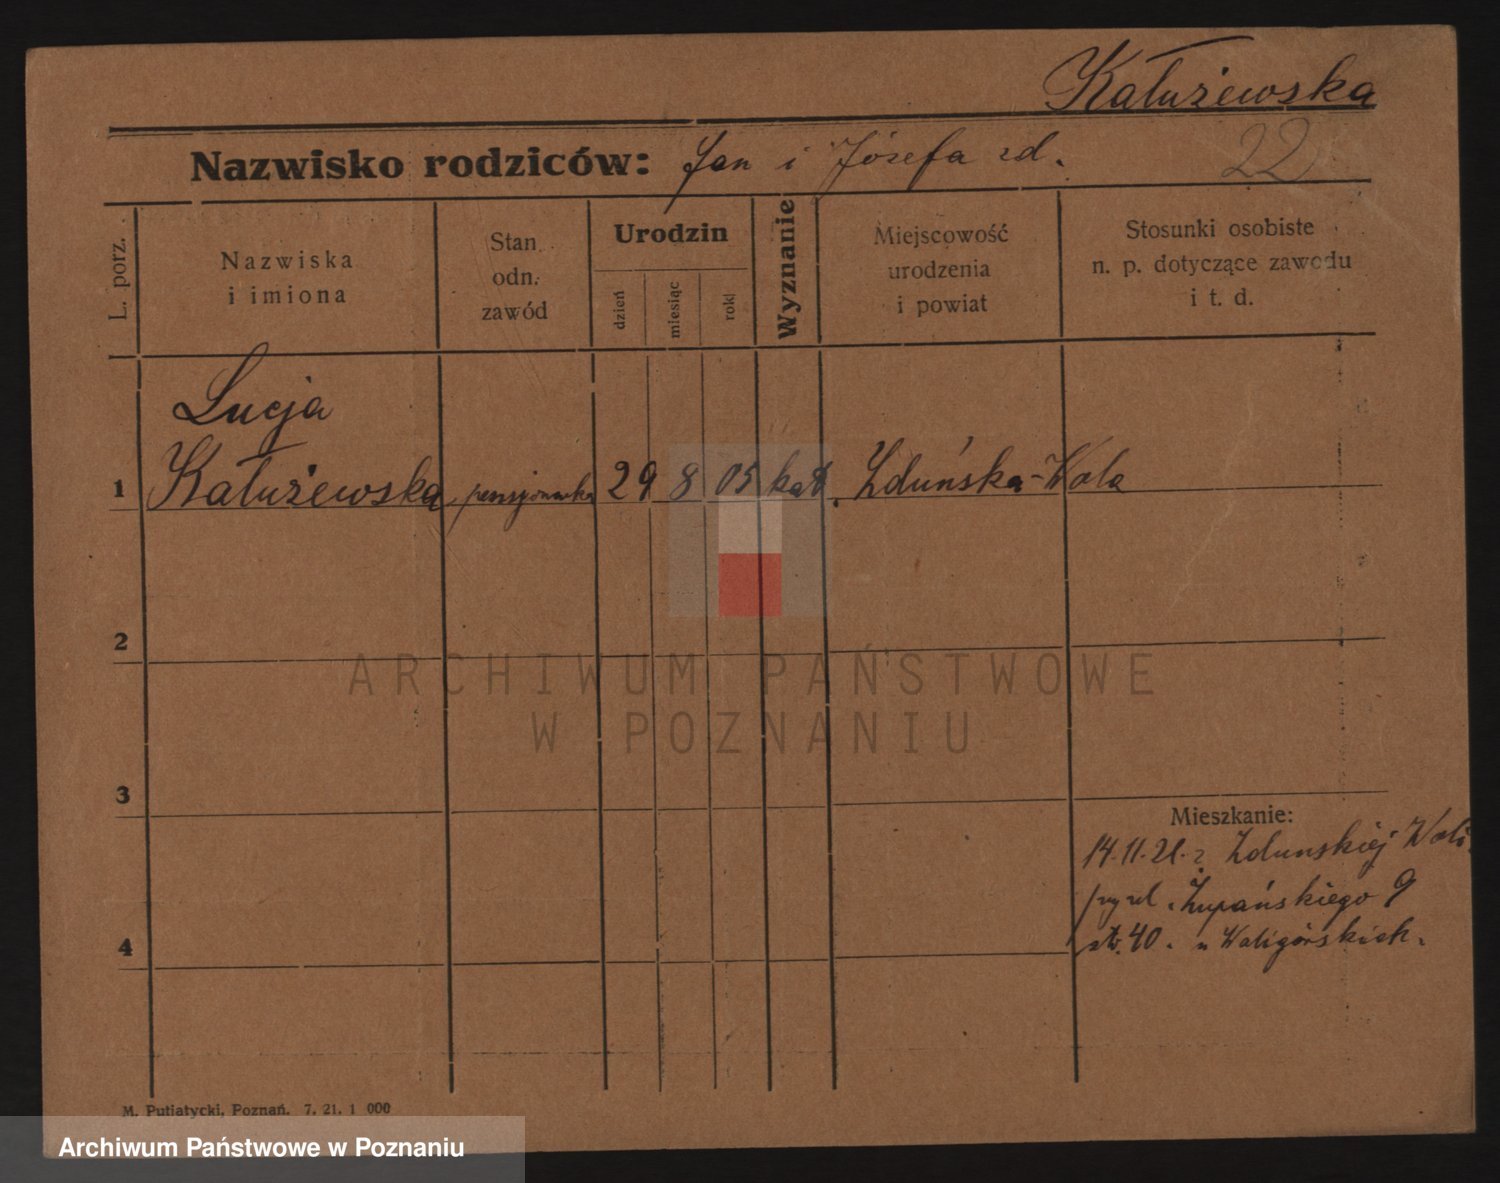 Kałużewska
22
Nazwisko rodziców: Jan i Józefa zd.
L. porz.
Nazwiska
i imiona
Stan
odn.
zawód
Urodzin
dzień
miesiąc
rok
Wyznanie
Miejscowość
urodzenia
i powiat
Stosunki osobiste
n. p. dotyczące zawodu
i t. d.
Łucja
1 Kałużewska pensjonarka 29 8 05 kat. Zduńska-Wola
2
3
Mieszkanie:
14.11.21. z Zdunskiej Woli
Żupańskiego 9
4
40. u Waligórskich.
M. Putiatycki, Poznań. 7. 21. 1 000
ARCHIWUM PAŃSTWOWE
W POZNANIU
Archiwum Państwowe w Poznaniu